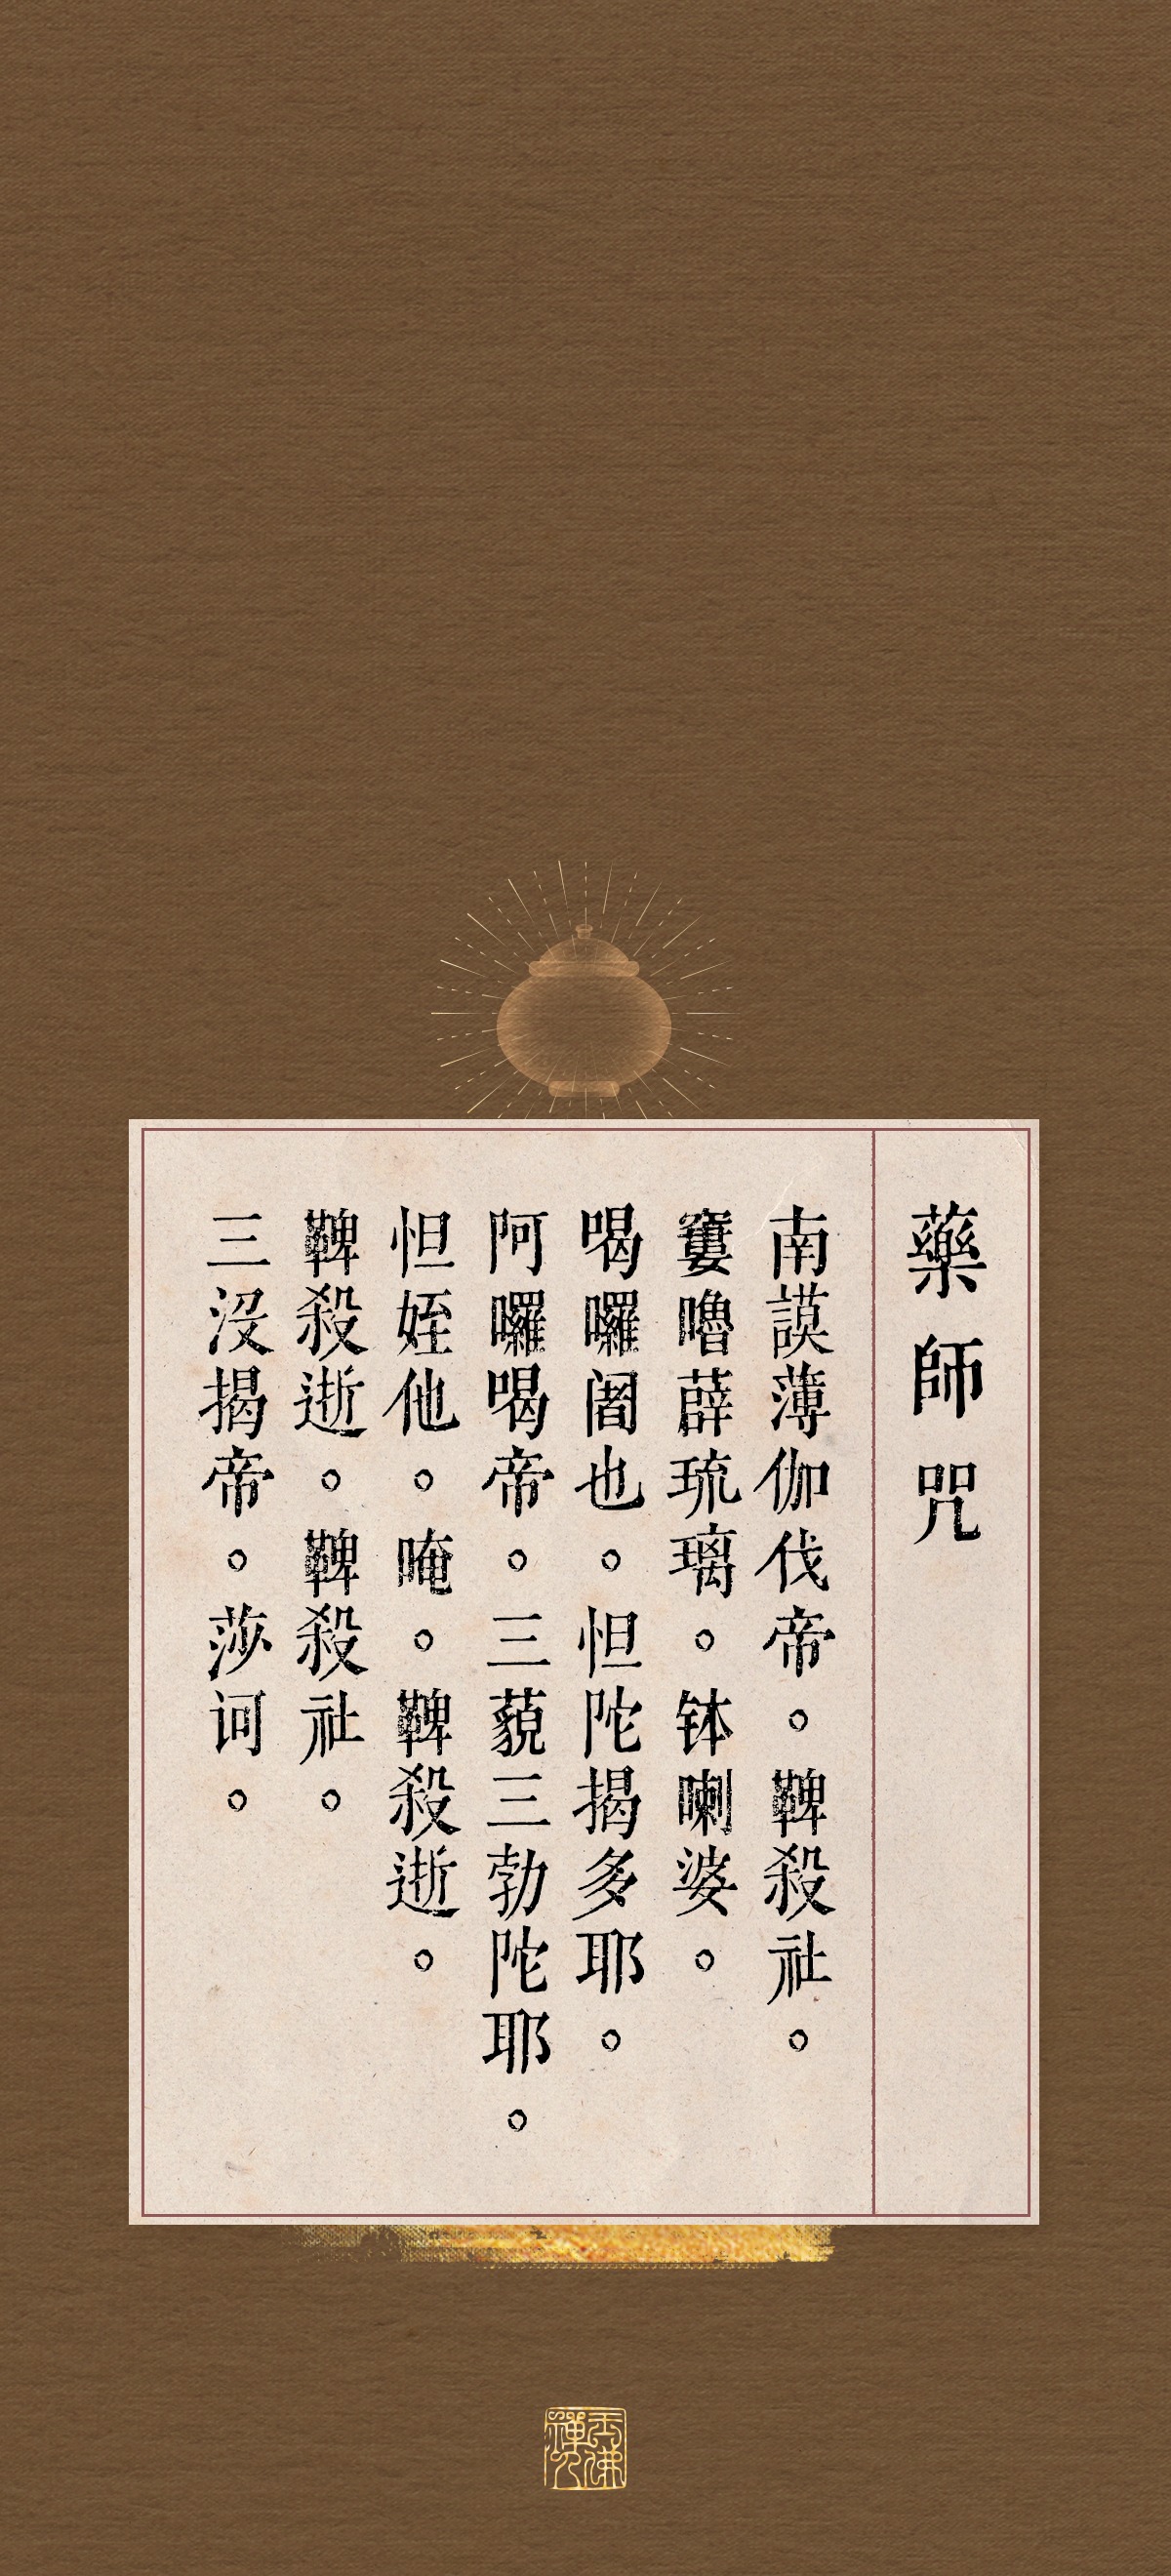 藥師咒
南謨薄伽伐帝。鞞殺社。
窶嚕薜琉璃。钵喇婆。
喝囉闍也。怛陀揭多耶。
阿囉喝帝。三藐三勃陀耶。
怛姪他。唵。鞞殺逝。
鞞殺逝。鞞殺社。
三没揭帝。莎诃。